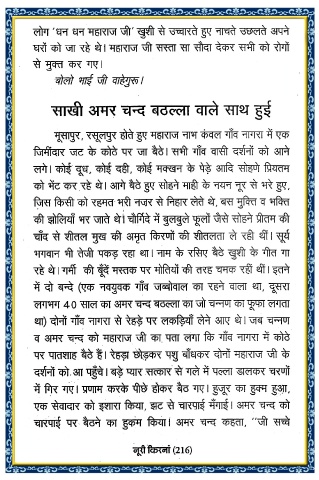 लोग 'धन धन महाराज जी' खुशी से उच्चारते हुए नाचते उछलते अपने
घरों को जा रहे थे। महाराज सस्ता सा सौदा देकर सभी को रोगों
से मुक्त कर गए।
बोलो भाई जी वाहेगुरू।
साखी अमर चन्द बठल्ला वाले साथ हुई
मूसापुर, रसूलपुर होते हुए महाराज नाभ कंवल गाँव नागरा में एक
जिमींदार जट के कोठे पर जा बैठे। सभी गाँव वासी दर्शनों को आने
लगे। कोई दूध, कोई दही, कोई मक्खन के पेड़े आदि सोहणे प्रियतम
को भेंट कर रहे थे। आगे बैठे हुए सोहने माही के नयन नूर से भरे हुए,
जिस किसी को रहमत भरी नजर से निहार लेते थे, बस मुक्ति व भक्ति
की झोलियाँ भर जाते थे। चौगिर्द में बुलबुले फूलों जैसे सोहने प्रीतम की
चाँव से शीतल मुख की अमृत किरणों की शीतलता ले रही थीं। सूर्य
भगवान भी तेजी पकड़ रहा था। नाम के रसिए बैठे खुशी के गीत गा
रहे थे। गर्मी की बूँदें मस्तक पर मोतियों की तरह चमक रहीं थीं। इतने
में दो बन्दे (एक नवयुवक गाँव जब्बोवाल का रहने वाला था, दूसरा
लगभग 40 साल का अमर चन्द बठल्ला का जो चन्नण का फूफा लगता
था) दोनों गाँव नागरा से रेहड़े पर लकड़ियाँ लेने आए थे। जब चन्नण
व अमर चन्द को महाराज जी का पता लगा कि गाँव नागरा में कोठे
पर पातशाह बैठे हैं। रेहड़ा छोड़कर पशु बाँधकर दोनों महाराज जी के
दर्शनों को आ पहुँचे। बड़े प्यार सत्कार से गले में पल्ला डालकर चरणों
में गिर गए। प्रणाम करके पीछे होकर बैठ गए। हुजूर का हुक्म हुआ,
एक सेवादार को इशारा किया, झट से चारपाई मँगाई। अमर चन्द को
चारपाई पर बैठने का हुकम किया। अमर चन्द कहता, ''जी सच्चे
नूरी किरनां (216)